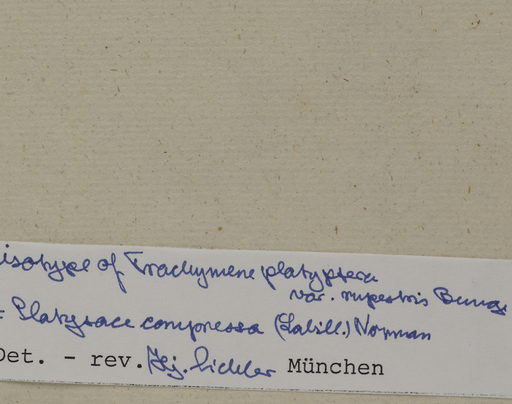 isotype of Trachymene platyptera
var. rupestris Bunge
= Platysace compressa (Labill.) Norman
Det. - rev. Hj. Eichler München